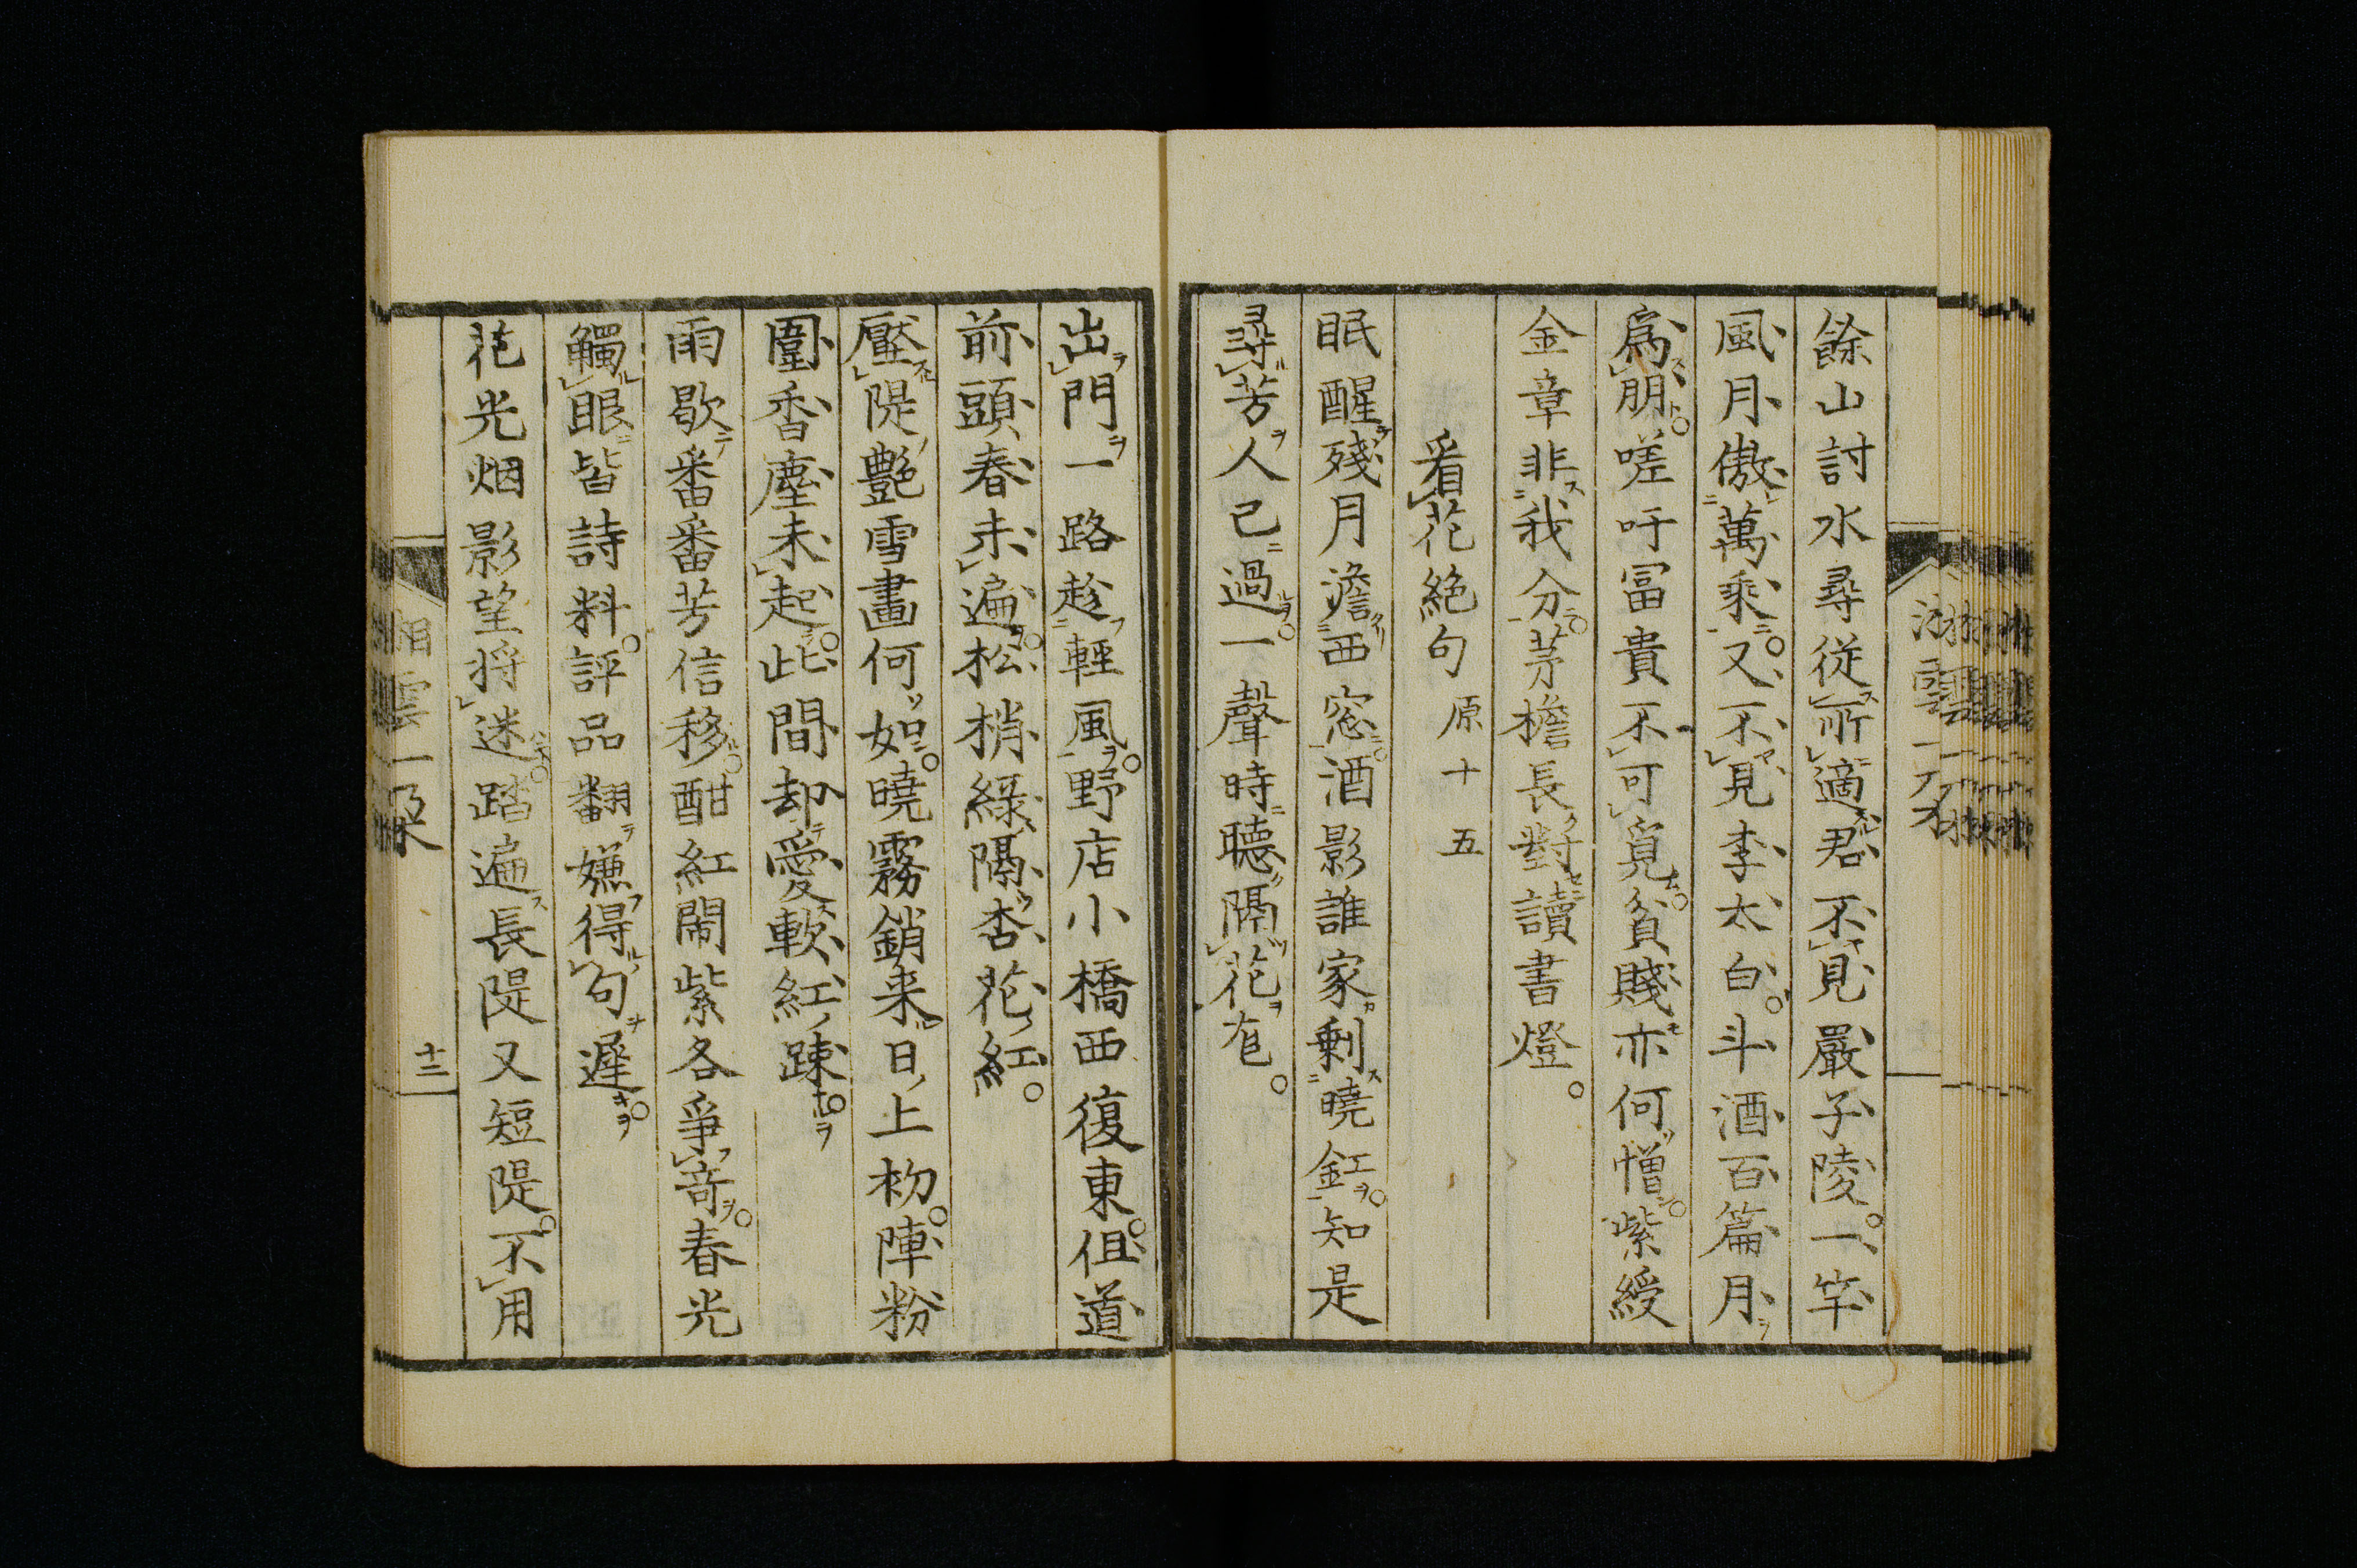 湘雲一朶
餘山討水尋從所適君不見嚴子陵。一竿
風月傲萬乘。又不見李太白。斗酒百篇月
爲朋。嗟吁冨貴不可覓。貧賤亦何憎。紫綬
金章非我分。茅檐長對讀書燈。
看花絶句 原十五
眠醒殘月澹西窓。酒影誰家剩曉釭。知是
尋芳人已過。一聲時聽隔花尨。
出門一路趁輕風。野店小橋西復東。但道
前頭春未遍。松梢綠隔杏花紅。
壓隄艷雪畫何如。曉霧銷来日上初。陣粉
圍香塵未起。此間却愛軟紅踈。
雨歇番番芳信移。酣紅閙紫各爭竒。春光
觸眼皆詩料。評品翻嫌得句遲。
花光烟影望将迷。踏遍長隄又短隄。不用
湘雲一朶
十二